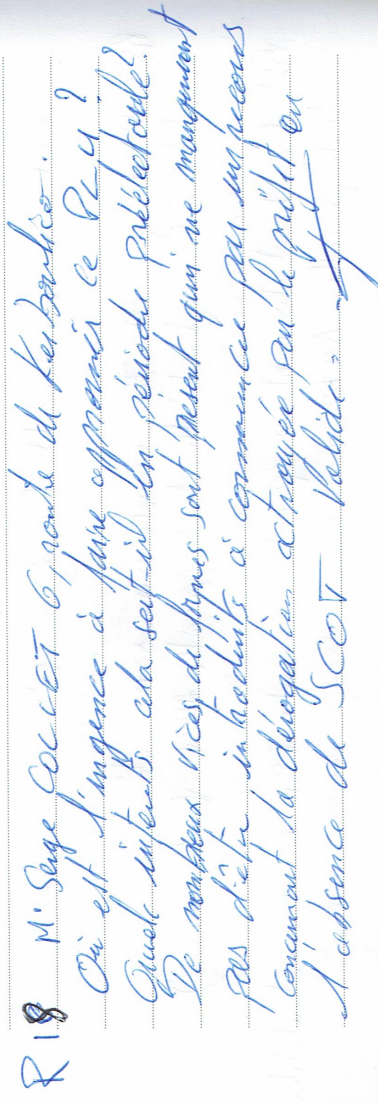 R18 Mr Serge COLLET 6, route de Kerboulico.
Où est l'urgence à faire approuver ce PLU?
Quels intérêts cela sert-il en période préélectorale?
De nombreux vices de formes sont présent qui ne manqueront
pas d'être introduits à commencer par un recours
concernant la dérogation octroyée par le préfet en
l'absence de SCOT validé.